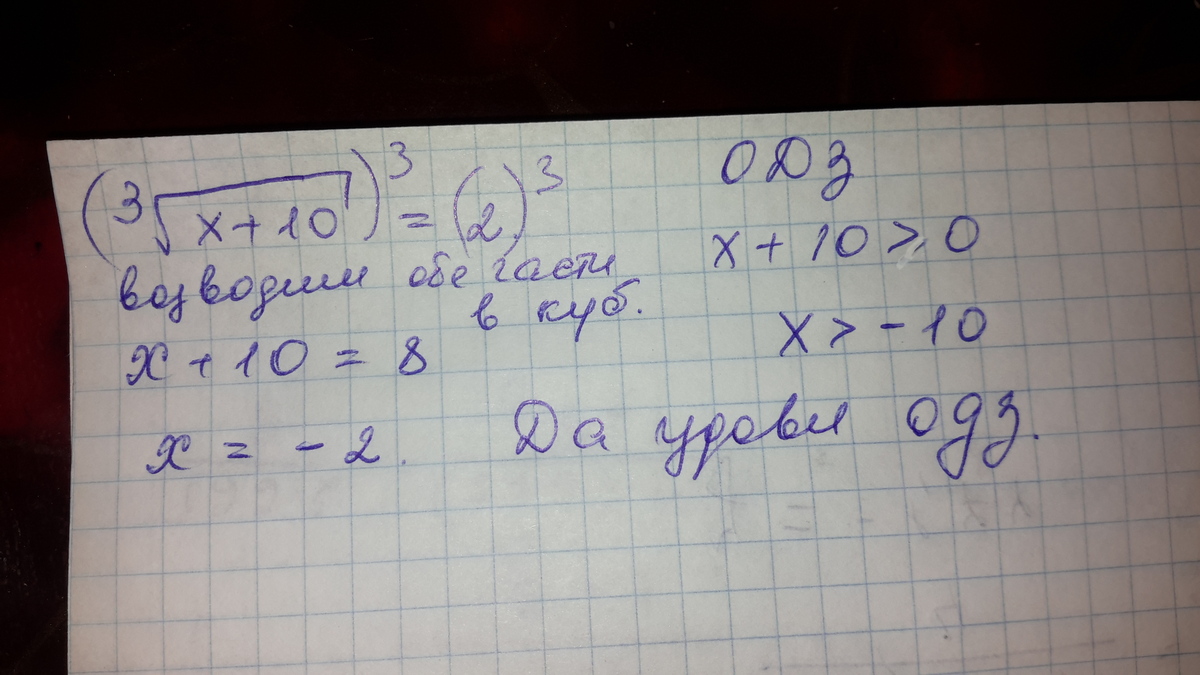 (∛(x+10))³ = (2)³
возводим обе части
в куб.
x + 10 = 8
x = - 2.
ОДЗ
x + 10 ≥ 0
x > - 10
Да удовл ОДЗ.